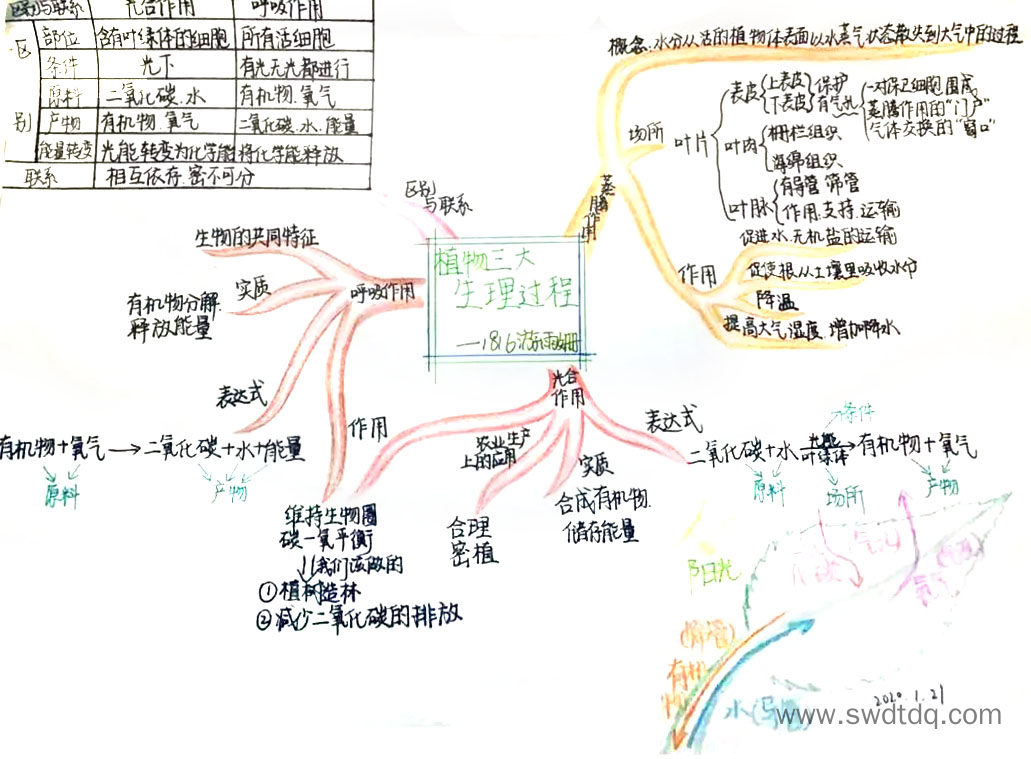 区别与联系 光合作用 呼吸作用
区别
部位 含有叶绿体的细胞 所有活细胞
条件 光下 有光无光都进行
原料 二氧化碳.水 有机物.氧气
产物 有机物.氧气 二氧化碳.水.能量
能量转变 光能转变为化学能 将化学能释放
联系 相互依存.密不可分
区别
与联系
植物三大
生理过程
蒸腾作用
概念:水分从活的植物体表面以水蒸气状态散失到大气中的过程
场所
叶片
表皮
上表皮
下表皮
保护
有气孔
一对保卫细胞围成
蒸腾作用的“门户”
气体交换的“窗口”
叶肉
栅栏组织
海绵组织
叶脉
有导管 筛管
作用.支持.运输
作用
促进水.无机盐的运输
促使根从土壤里吸收水分
降温
提高大气湿度.增加降水
呼吸作用
生物的共同特征
实质
有机物分解.
释放能量
表达式
有机物+氧气→二氧化碳+水+能量
原料
产物
作用
维持生物圈
碳-氧平衡
我们该做的
①植树造林
②减少二氧化碳的排放
光合
作用
农业生产
上的应用
合理
密植
实质
合成有机物.
储存能量
表达式
条件
二氧化碳+水 光能 叶绿体 →有机物+氧气
原料
场所
产物
阳光
有机物
水(导管)
2020.1.21
www.swdtdq.com